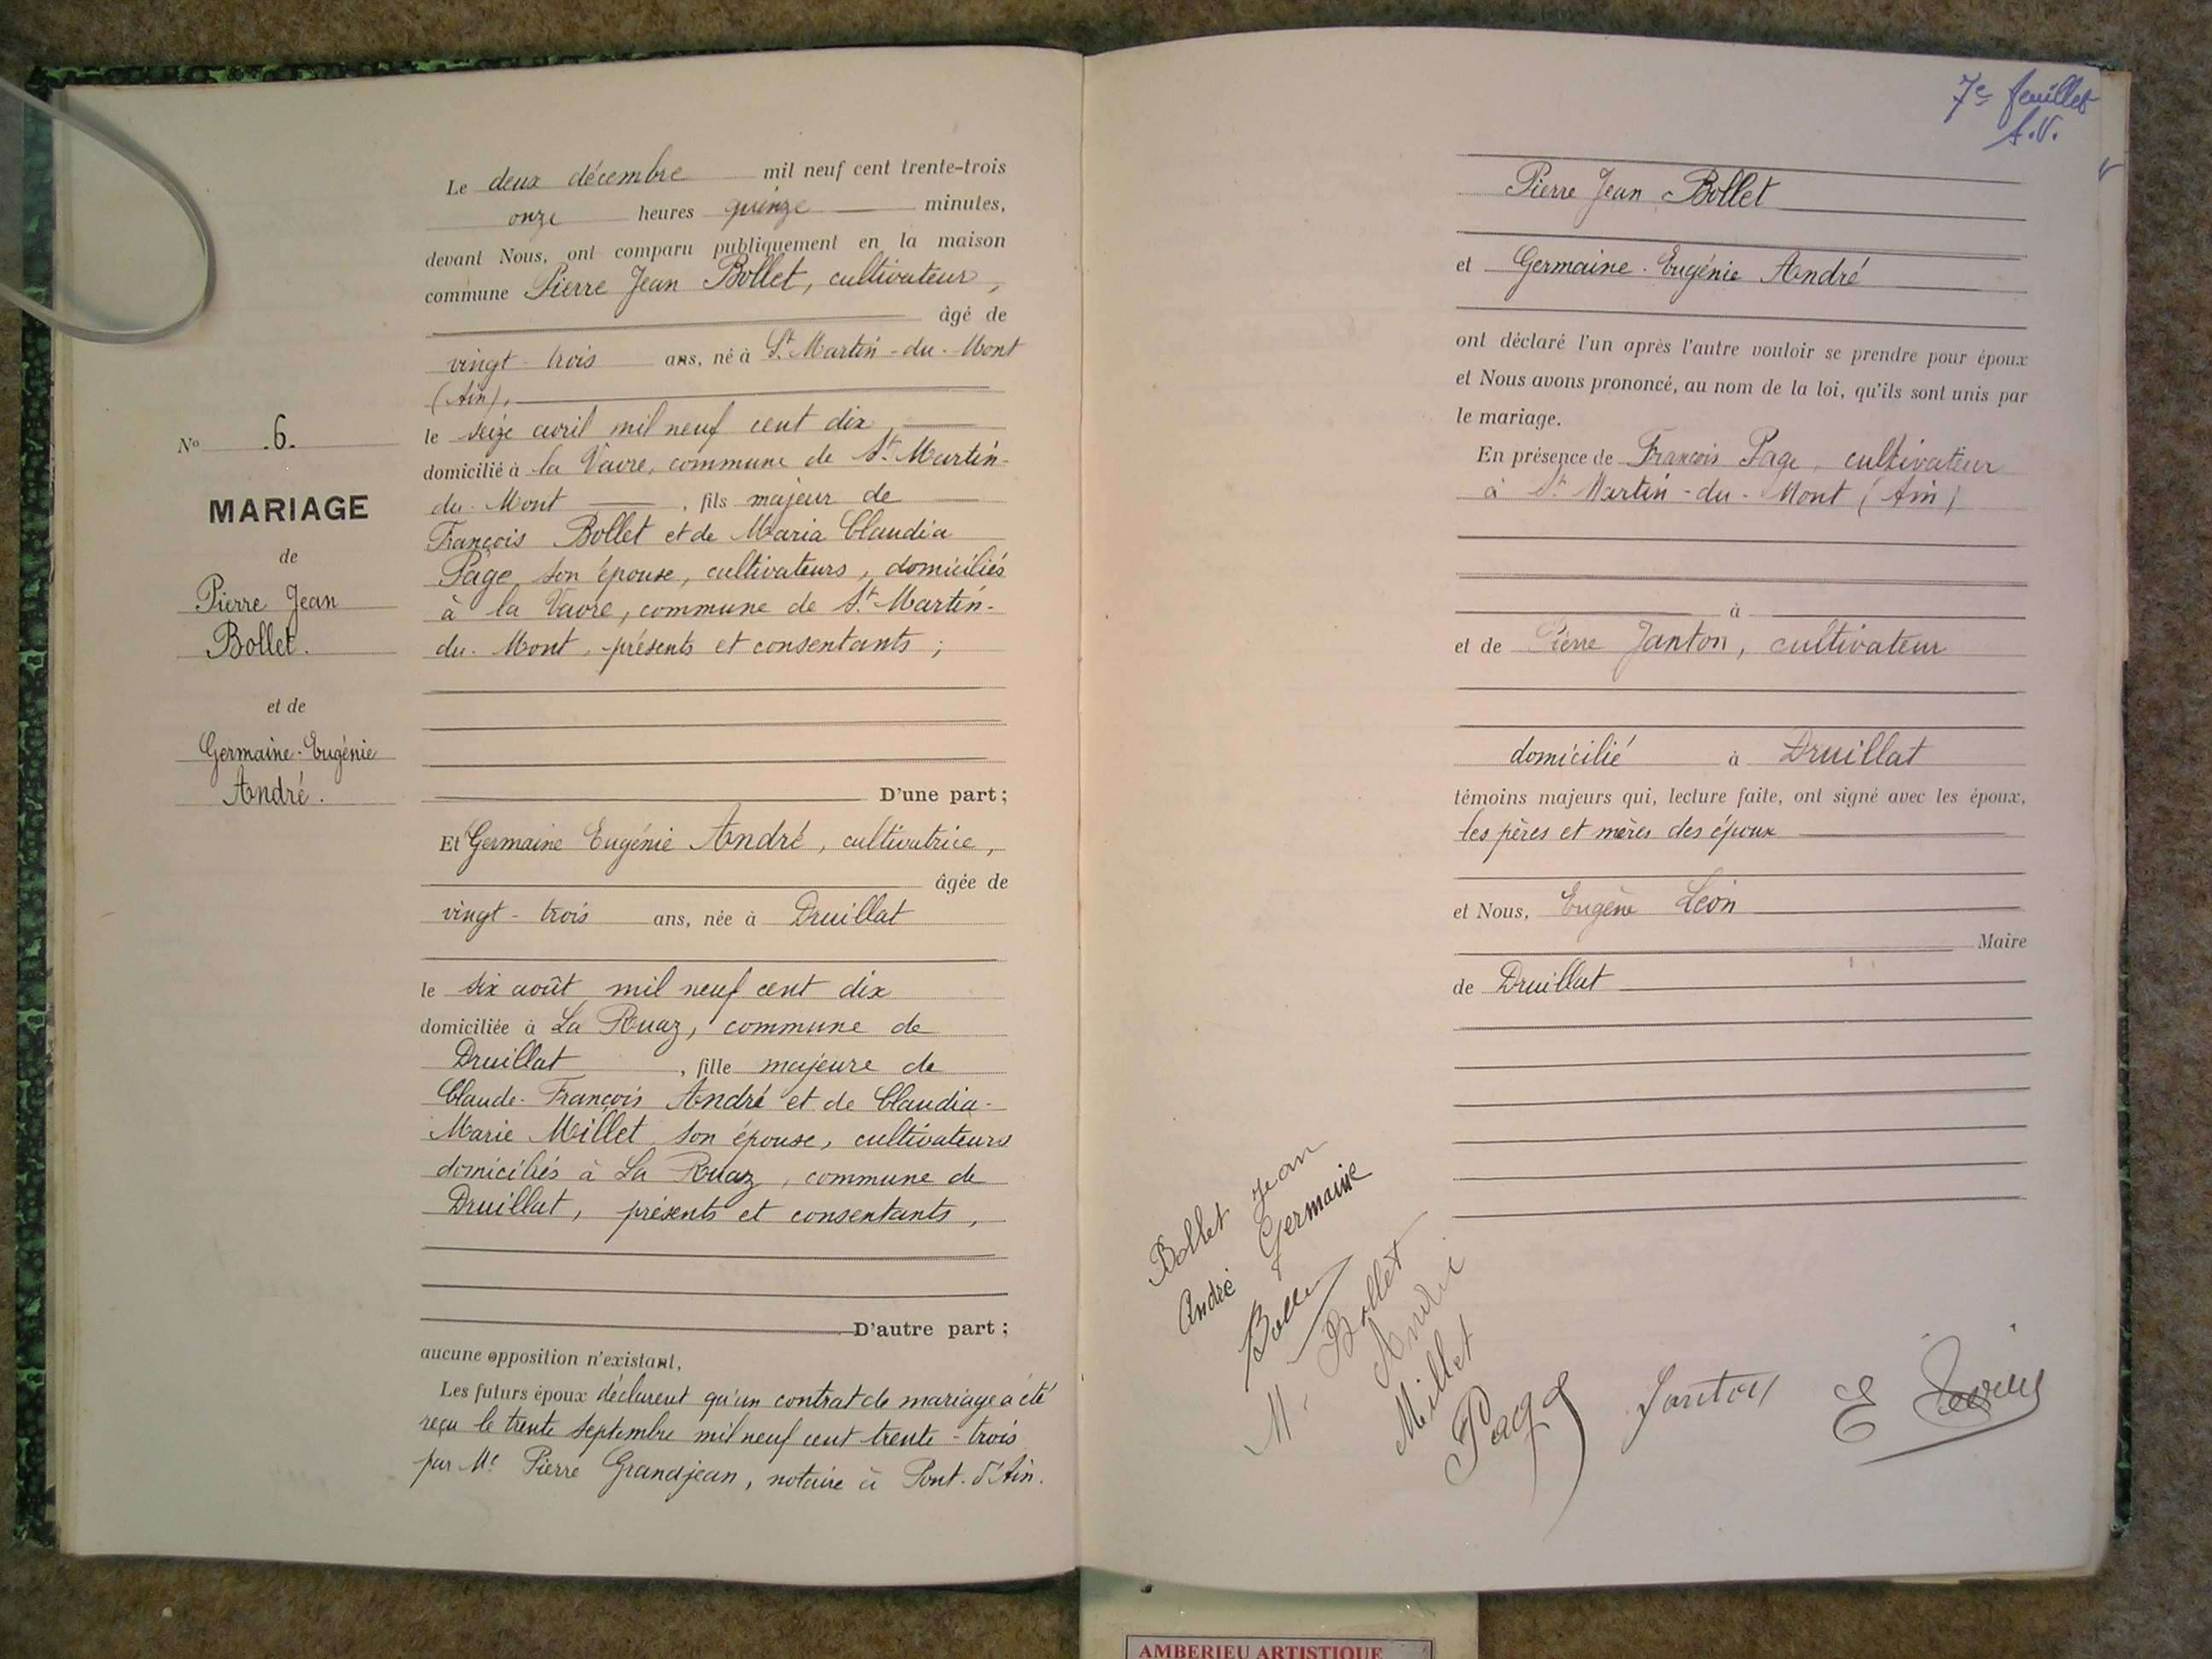 Le deux décembre mil neuf cent trente-trois
onze heures quinze minutes,
devant Nous, ont comparu publiquement en la maison
commune Pierre Jean Bollet, cultivateur,
âgé de
vingt-trois ans, né à St. Martin-du-Mont
(Ain),
le seize avril mil neuf cent dix,
domicilié à la Vavre, commune de St. Martin-
du-Mont, fils majeur de
François Bollet et de Maria Claudia
Page, son épouse, cultivateurs, domiciliés
à la Vavre, commune de St. Martin-
du-Mont, présents et consentants;
D'une part;
Et Germaine Eugénie André, cultivatrice,
âgée de
vingt-trois ans, née à Druillat
le six août mil neuf cent dix
domiciliée à La Ruaz, commune de
Druillat, fille majeure de
Claude-François André et de Claudia-
Marie Millet, son épouse, cultivateurs
domiciliés à La Ruaz, commune de
Druillat, présents et consentants,
D'autre part;
aucune opposition n'existant,
Les futurs époux déclarent qu'un contrat de mariage a été
reçu le trente septembre mil neuf cent trente-trois
par Me Pierre Grandjean, notaire à Pont-d'Ain.
No .6.
MARIAGE
de
Pierre Jean
Bollet.
et de
Germaine-Eugénie
André.
7e feuillet
A.V.
Pierre Jean Bollet
et Germaine-Eugénie André
ont déclaré l'un après l'autre vouloir se prendre pour époux
et Nous avons prononcé, au nom de la loi, qu'ils sont unis par
le mariage.
En présence de François Page, cultivateur
à St Martin-du-Mont (Ain)
à
et de Pierre Janton, cultivateur
domicilié à Druillat
témoins majeurs qui, lecture faite, ont signé avec les époux,
les pères et mères des époux
et Nous, Eugène Léon
Maire
de Druillat
Bollet Jean
André Germaine
Bollet
M. Bollet
André
Millet
Page
Janton
E
AMBERIEU ARTISTIQUE